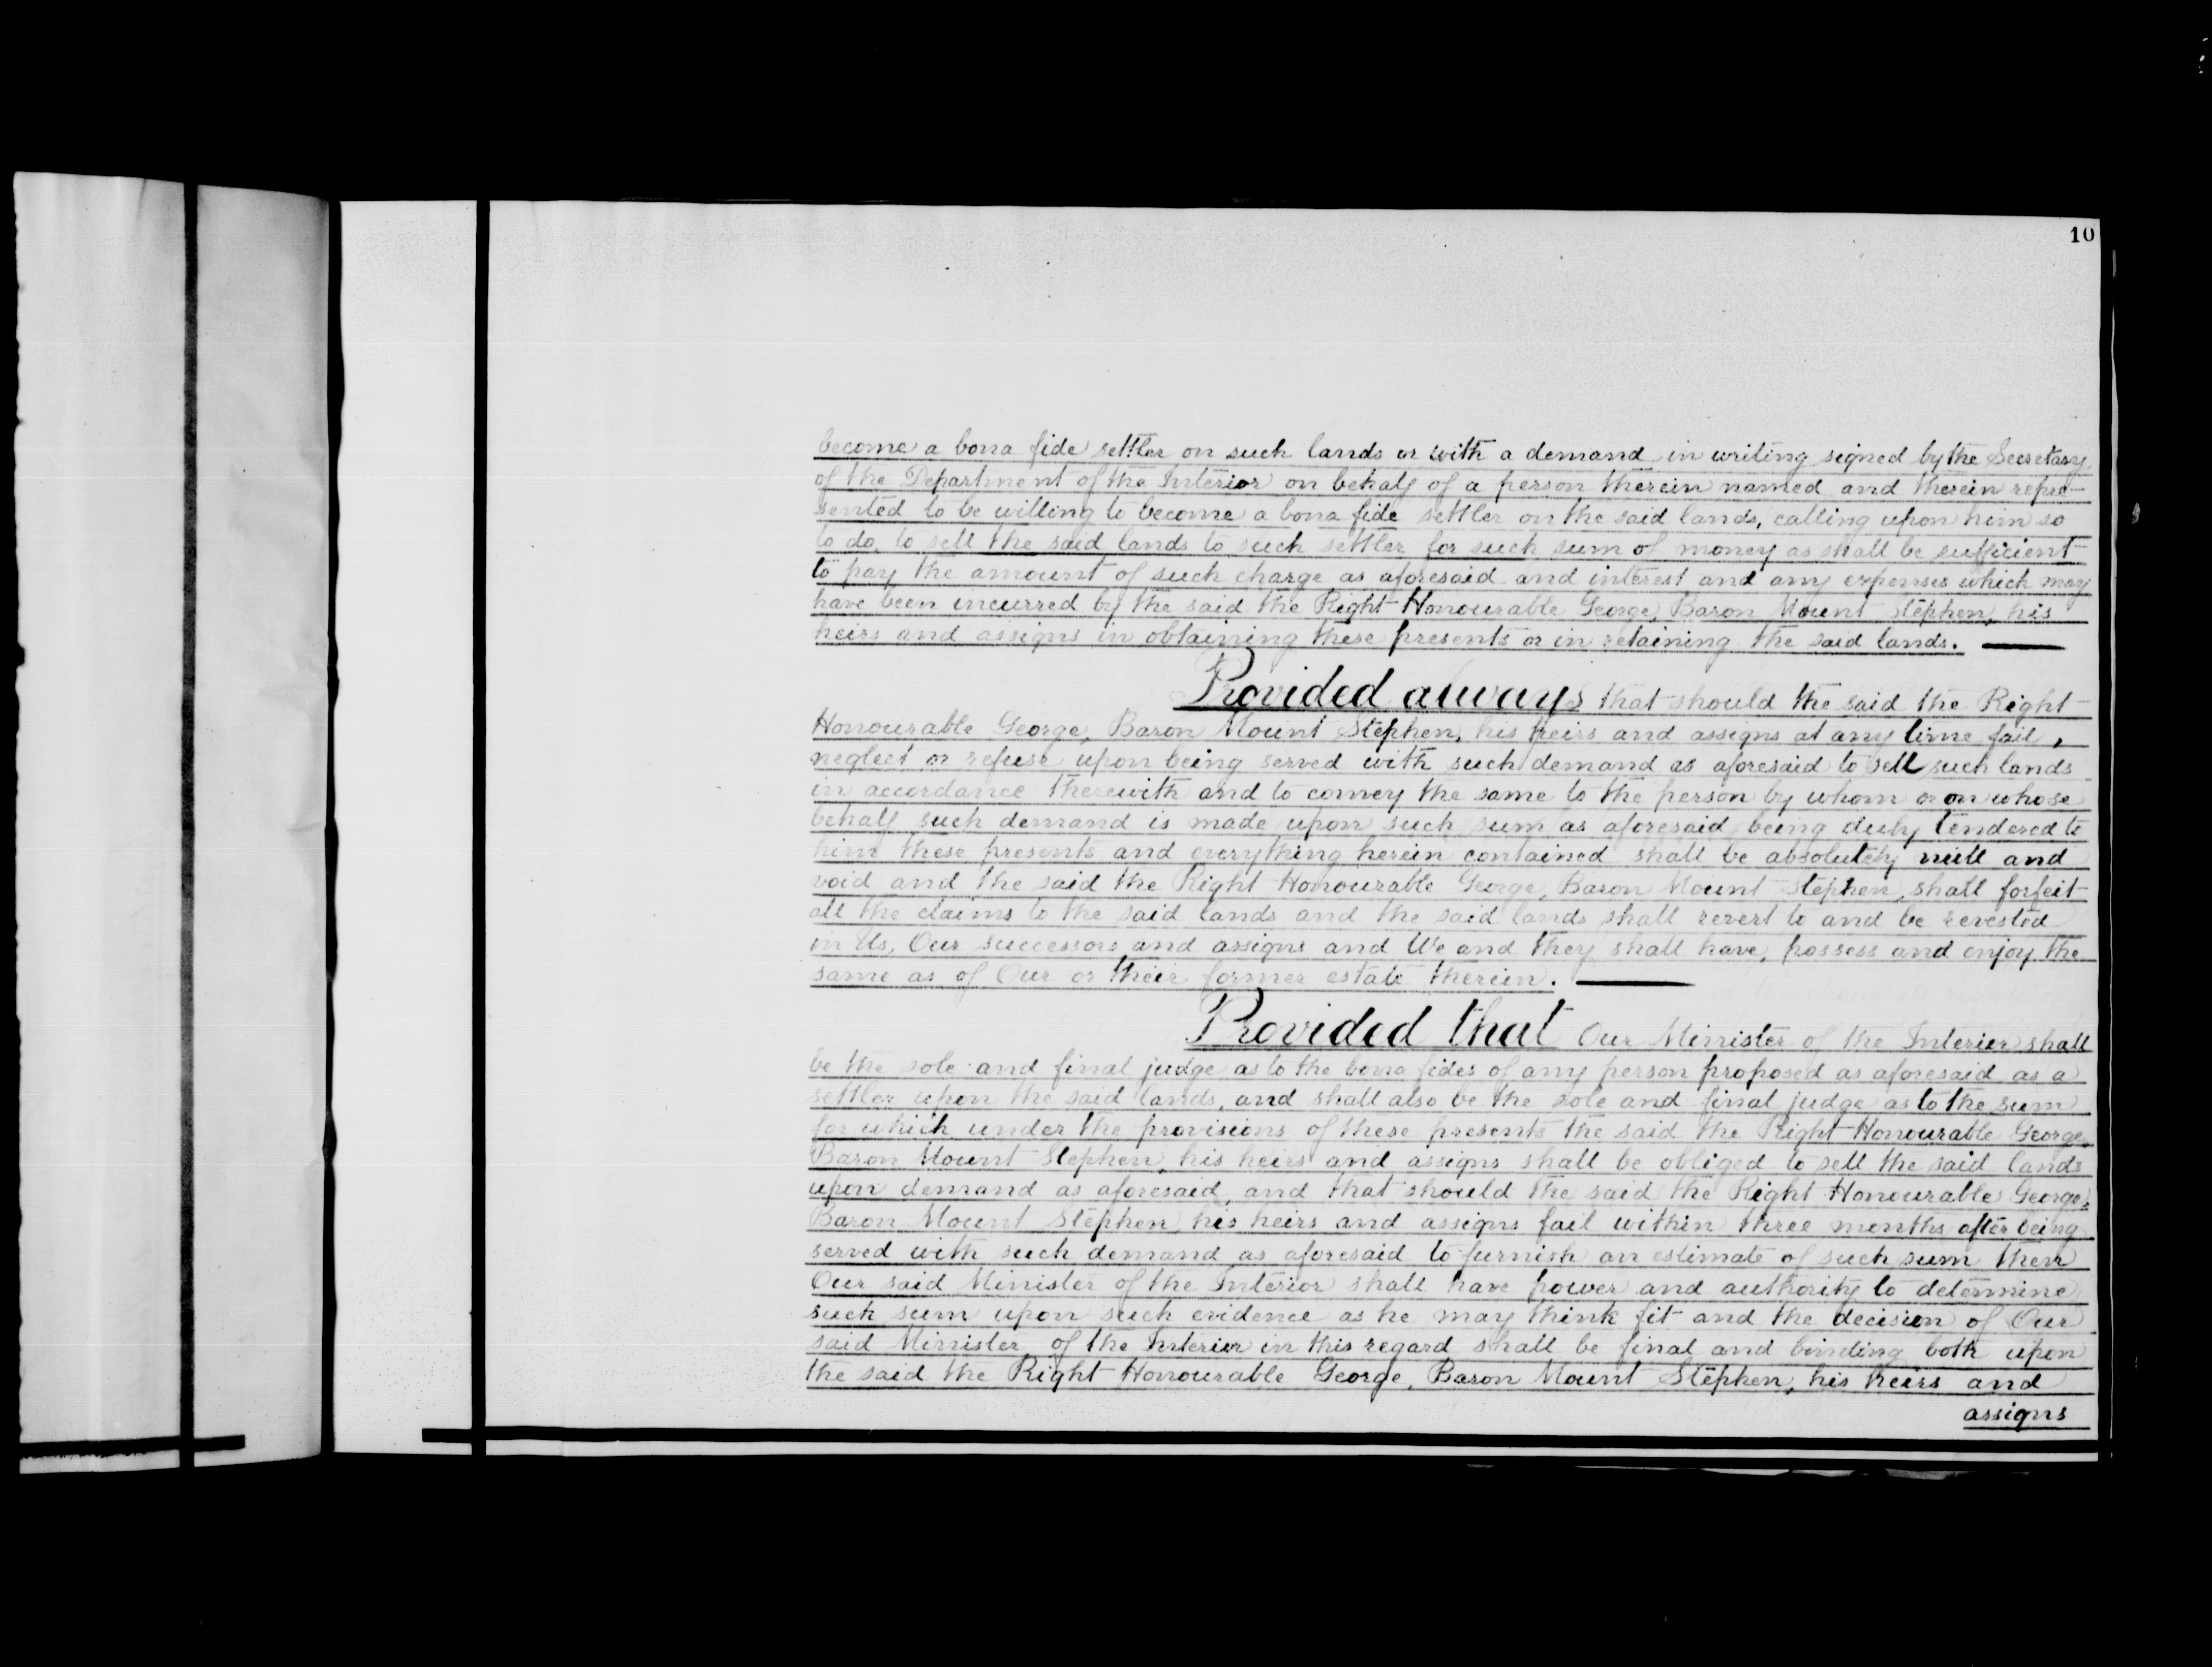 10
become a bona fide settler on such lands or with a demand in writing signed by the Secretary
of the Department of the Interior on behalf of a person therein named and therein repre-
sented to be willing to become a bona fide settler on the said lands, calling upon him so
to do, to sell the said lands to such settler for such sum of money as shall be sufficient
to pay the amount of such charge as aforesaid and interest and any expenses which may
have been incurred by the said the Right Honourable George, Baron Mount Stephen, his
heirs and assigns in obtaining these presents or in retaining the said lands.
Provided always that should the said the Right
Honourable George, Baron Mount Stephen, his heirs and assigns at any time fail,
neglect or refuse upon being served with such demand as aforesaid to sell such lands
in accordance therewith and to convey the same to the person by whom or on whose
behalf such demand is made upon such sum as aforesaid being duly tendered to
him these presents and everything herein contained shall be absolutely null and
void and the said the Right Honourable George, Baron Mount Stephen, shall forfeit
all the claims to the said lands and the said lands shall revert to and be revested
in Us, Our successors and assigns and We and they shall have, possess and enjoy the
same as of Our or their former estate therein.
Provided that Our Minister of the Interior shall
be the sole and final judge as to the bona fides of any person proposed as aforesaid as a
settler upon the said lands, and shall also be the sole and final judge as to the sum
for which under the provisions of these presents the said the Right Honourable George,
Baron Mount Stephen, his heirs and assigns shall be obliged to sell the said lands
upon demand as aforesaid, and that should the said the Right Honourable George,
Baron Mount Stephen, his heirs and assigns fail within three months after being
served with such demand as aforesaid to furnish an estimate of such sum then
Our said Minister of the Interior shall have power and authority to determine
such sum upon such evidence as he may think fit and the decision of Our
said Minister of the Interior in this regard shall be final and binding both upon
the said the Right Honourable George, Baron Mount Stephen, his heirs and
assigns